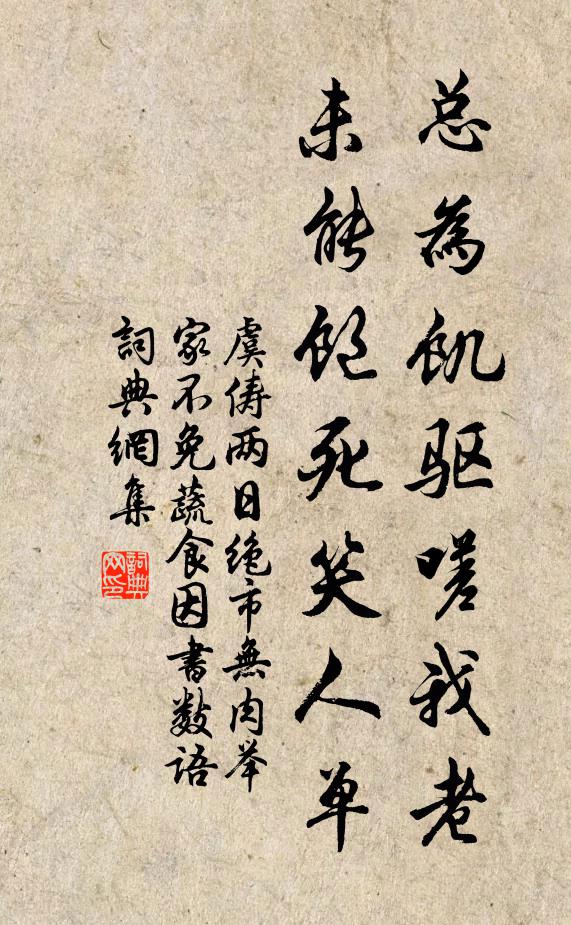 总為飢驱嗟我老
未能饱死笑人单
虞俦两日绝市無肉举
家不免蔬食因書数语
詞典網集
詞典
网印